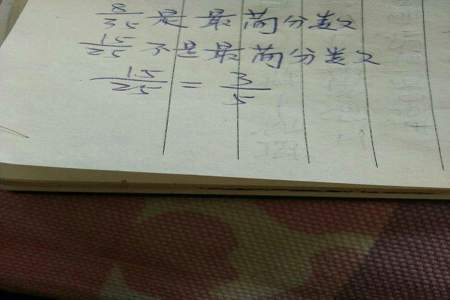 8/35 是最简分数
15/25 不是最简分数
15/25 = 3/5